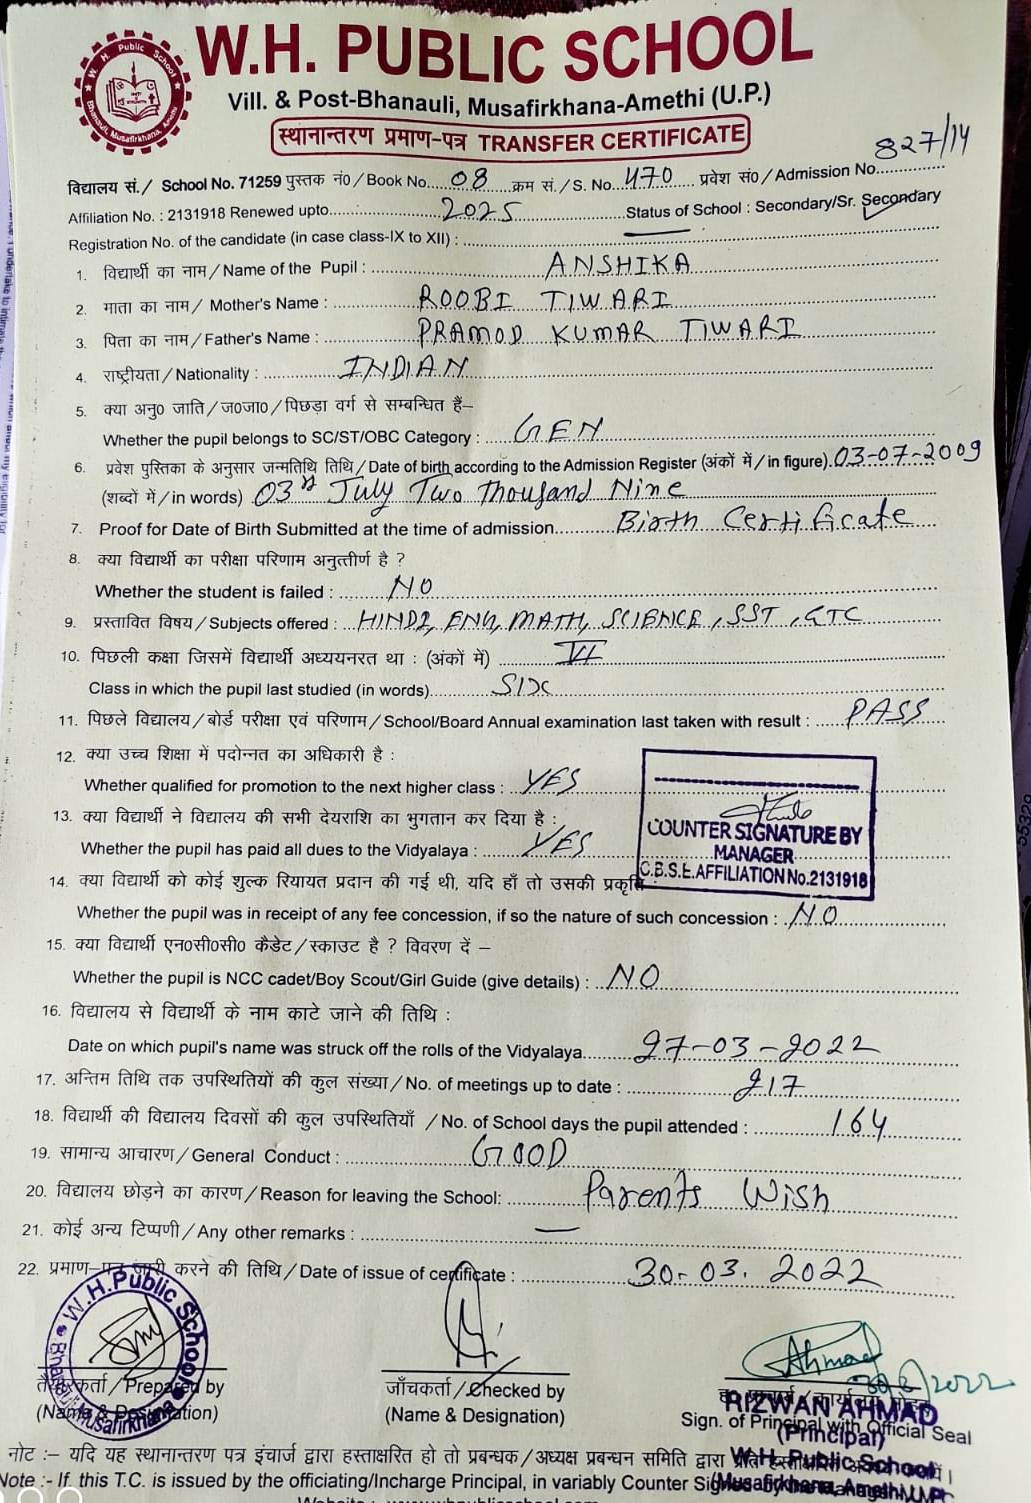 W.H. PUBLIC SCHOOL
Vill. & Post-Bhanauli, Musafirkhana-Amethi (U.P.)
स्थानान्तरण प्रमाण-पत्र TRANSFER CERTIFICATE
827/14
विद्यालय सं./ School No. 71259 पुस्तक नं०/Book No. 08 क्रम सं./S. No. 470 प्रवेश सं०/Admission No.
Affiliation No. : 2131918 Renewed upto 2025 Status of School : Secondary/Sr. Secondary
Registration No. of the candidate (in case class-IX to XII) :
1. विद्यार्थी का नाम/Name of the Pupil : ANSHIKA
2. माता का नाम/ Mother's Name : ROOBI TIWARI
3. पिता का नाम/Father's Name : PRAMOD KUMAR TIWARI
4. राष्ट्रीयता/Nationality : INDIAN
5. क्या अनु० जाति/ज०जा०/पिछड़ा वर्ग से सम्बन्धित हैं–
Whether the pupil belongs to SC/ST/OBC Category : GEN
6. प्रवेश पुस्तिका के अनुसार जन्मतिथि तिथि/Date of birth according to the Admission Register (अंकों में/in figure) 03-07-2009
(शब्दों में/in words) 03rd July Two Thousand Nine
7. Proof for Date of Birth Submitted at the time of admission Birth Certificate
8. क्या विद्यार्थी का परीक्षा परिणाम अनुत्तीर्ण है ?
Whether the student is failed : NO
9. प्रस्तावित विषय/Subjects offered : HINDI, ENG, MATH, SCIENCE, SST, GTC
10. पिछली कक्षा जिसमें विद्यार्थी अध्ययनरत था : (अंकों में) VI
Class in which the pupil last studied (in words) SIX
11. पिछले विद्यालय/बोर्ड परीक्षा एवं परिणाम/School/Board Annual examination last taken with result : PASS
12. क्या उच्च शिक्षा में पदोन्नत का अधिकारी है :
Whether qualified for promotion to the next higher class : YES
13. क्या विद्यार्थी ने विद्यालय की सभी देयराशि का भुगतान कर दिया है :
Whether the pupil has paid all dues to the Vidyalaya : YES
COUNTER SIGNATURE BY
MANAGER
C.B.S.E. AFFILIATION No.2131918
14. क्या विद्यार्थी को कोई शुल्क रियायत प्रदान की गई थी, यदि हाँ तो उसकी प्रकृति :
Whether the pupil was in receipt of any fee concession, if so the nature of such concession : NO
15. क्या विद्यार्थी एन०सी०सी० कैडेट/स्काउट है ? विवरण दें –
Whether the pupil is NCC cadet/Boy Scout/Girl Guide (give details) : NO
16. विद्यालय से विद्यार्थी के नाम काटे जाने की तिथि :
Date on which pupil's name was struck off the rolls of the Vidyalaya 27-03-2022
17. अन्तिम तिथि तक उपस्थितियों की कुल संख्या/No. of meetings up to date : 217
18. विद्यार्थी की विद्यालय दिवसों की कुल उपस्थितियाँ /No. of School days the pupil attended : 164
19. सामान्य आचारण/General Conduct : GOOD
20. विद्यालय छोड़ने का कारण/Reason for leaving the School: Parents Wish
21. कोई अन्य टिप्पणी/Any other remarks : —
22. प्रमाण-पत्र जारी करने की तिथि/Date of issue of certificate : 30-03.2022
W.H. Public School
Ahmad
तैयारकर्ता/Prepared by
(Name & Designation)
जाँचकर्ता/Checked by
(Name & Designation)
RIZWAN AHMAD
Sign. of Principal with Official Seal
(Principal)
W.H. Public School
Musafirkhana, Amethi, U.P.
नोट :– यदि यह स्थानान्तरण पत्र इंचार्ज द्वारा हस्ताक्षरित हो तो प्रबन्धक/अध्यक्ष प्रबन्धन समिति द्वारा
Note :- If, this T.C. is issued by the officiating/Incharge Principal, in variably Counter Signed by the Manager